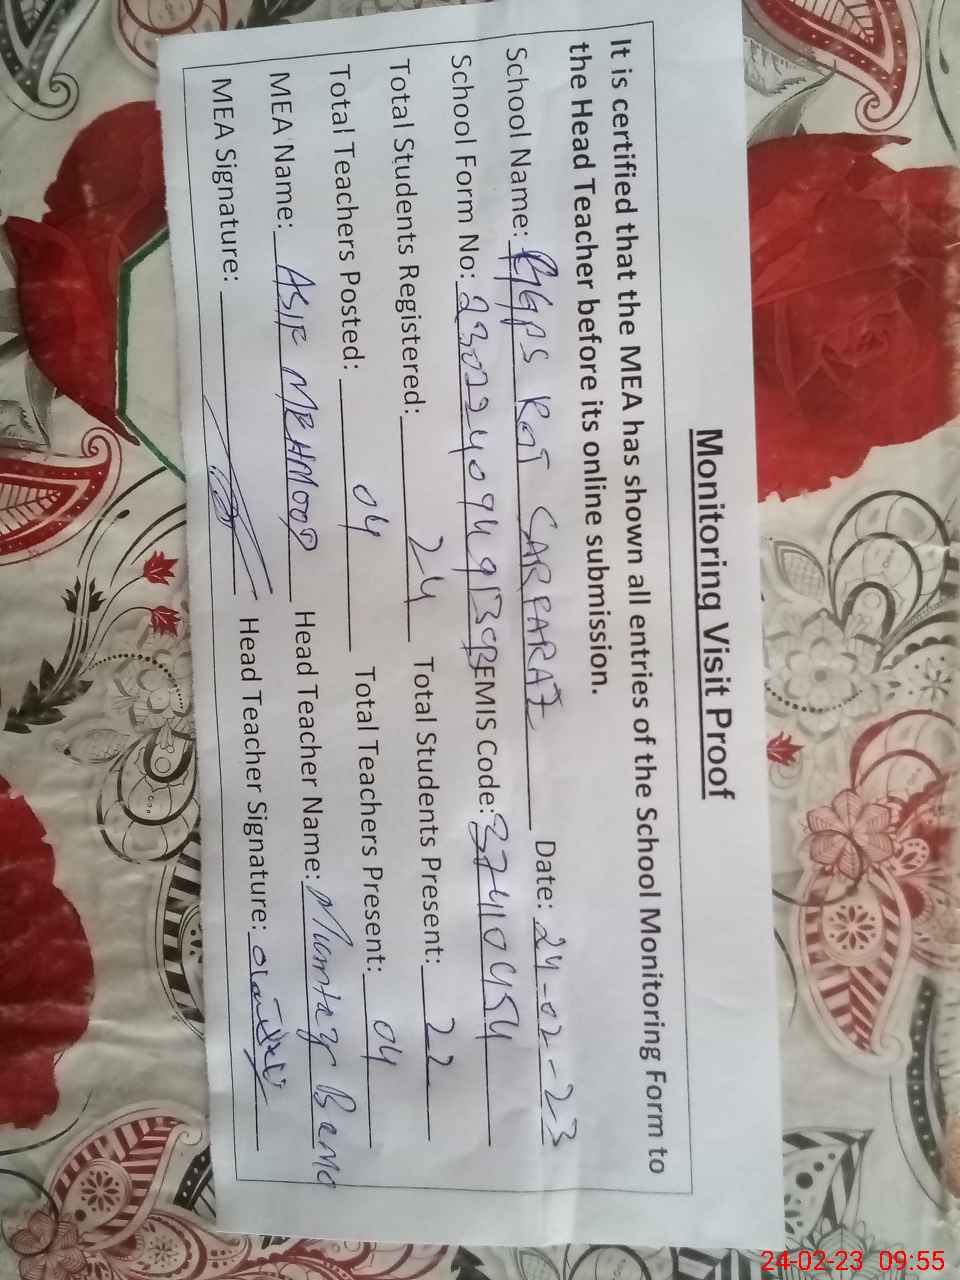 Monitoring Visit Proof
It is certified that the MEA has shown all entries of the School Monitoring Form to
the Head Teacher before its online submission.
School Name: GGPS KOT SARFARAZ Date: 24-02-23
School Form No: EMIS Code: 37410454
Total Students Registered: 24 Total Students Present: 22
Total Teachers Posted: 04 Total Teachers Present: 04
MEA Name: ASIF MEHMOOD Head Teacher Name: Mumtaz Bano
MEA Signature: Head Teacher Signature:
24-02-23 09:55